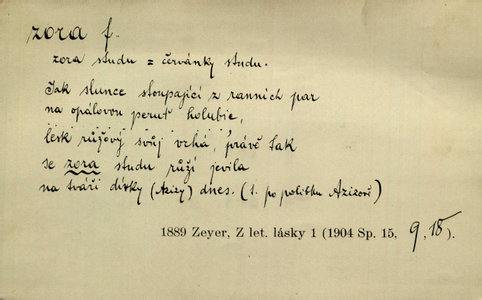 zora f.
zora studu = červánky studu.
Jak slunce stoupající z ranních par
na opálovou peruť holubic,
lesk růžový svůj vrhá, právě tak
se zora studu růží jevila
na tváři dívky (Azizy) dnes. (1. po polibku Azizově)
1889 Zeyer, Z let. lásky 1 (1904 Sp. 15, 9, 18).